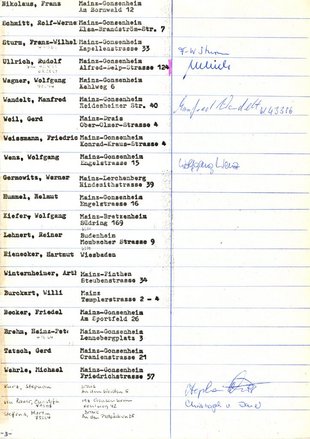 Nikolaus, Franz Mainz-Gonsenheim
Am Bornwald 12
Schmitt, Rolf-Werner Mainz-Gonsenheim
Elsa-Brandström-Str. 7
Sturm, Franz-Wilhel Mainz-Gonsenheim
Kapellenstrasse 33 F-W Sturm
Ullrich, Rudolf Mainz-Gonsenheim
Alfred-Delp-Strasse 124
Wagner, Wolfgang Mainz-Gonsenheim
Kehlweg 6
Wandelt, Manfred Mainz-Gonsenheim Manfred Wandelt
Heidesheimer Str. 40
Weil, Gerd Mainz-Drais
Ober-Olmer-Strasse 4
Weissmann, Friedric Mainz-Gonsenheim
Konrad-Kraus-Strasse 4
Wenz, Wolfgang Mainz-Gonsenheim
Engelstrasse 15 Wolfgang Wenz
Gernowitz, Werner Mainz-Lerchenberg
Hindesithstrasse 39
Hummel, Helmut Mainz-Gonsenheim
Engelstrasse 16
Kiefer, Wolfgang Mainz-Bretzenheim
Südring 169
Lehnert, Reiner Budenheim
Mombacher Strasse 9
Rienecker, Hartmut Wiesbaden
Winternheimer, Art Mainz-Finthen
Steubenstrasse 34
Burckart, Willi Mainz
Templerstrasse 2 - 4
Becker, Friedel Mainz-Gonsenheim
Am Sportfeld 26
Brehm, Heinz-Pet Mainz-Gonsenheim
Lennebergplatz 3
Tatsch, Gerd Mainz-Gonsenheim
Oranienstrasse 21
Wehrle, Michael Mainz-Gonsenheim
Friedrichstrasse 57
Stephan
Stefens, Martin
-3-